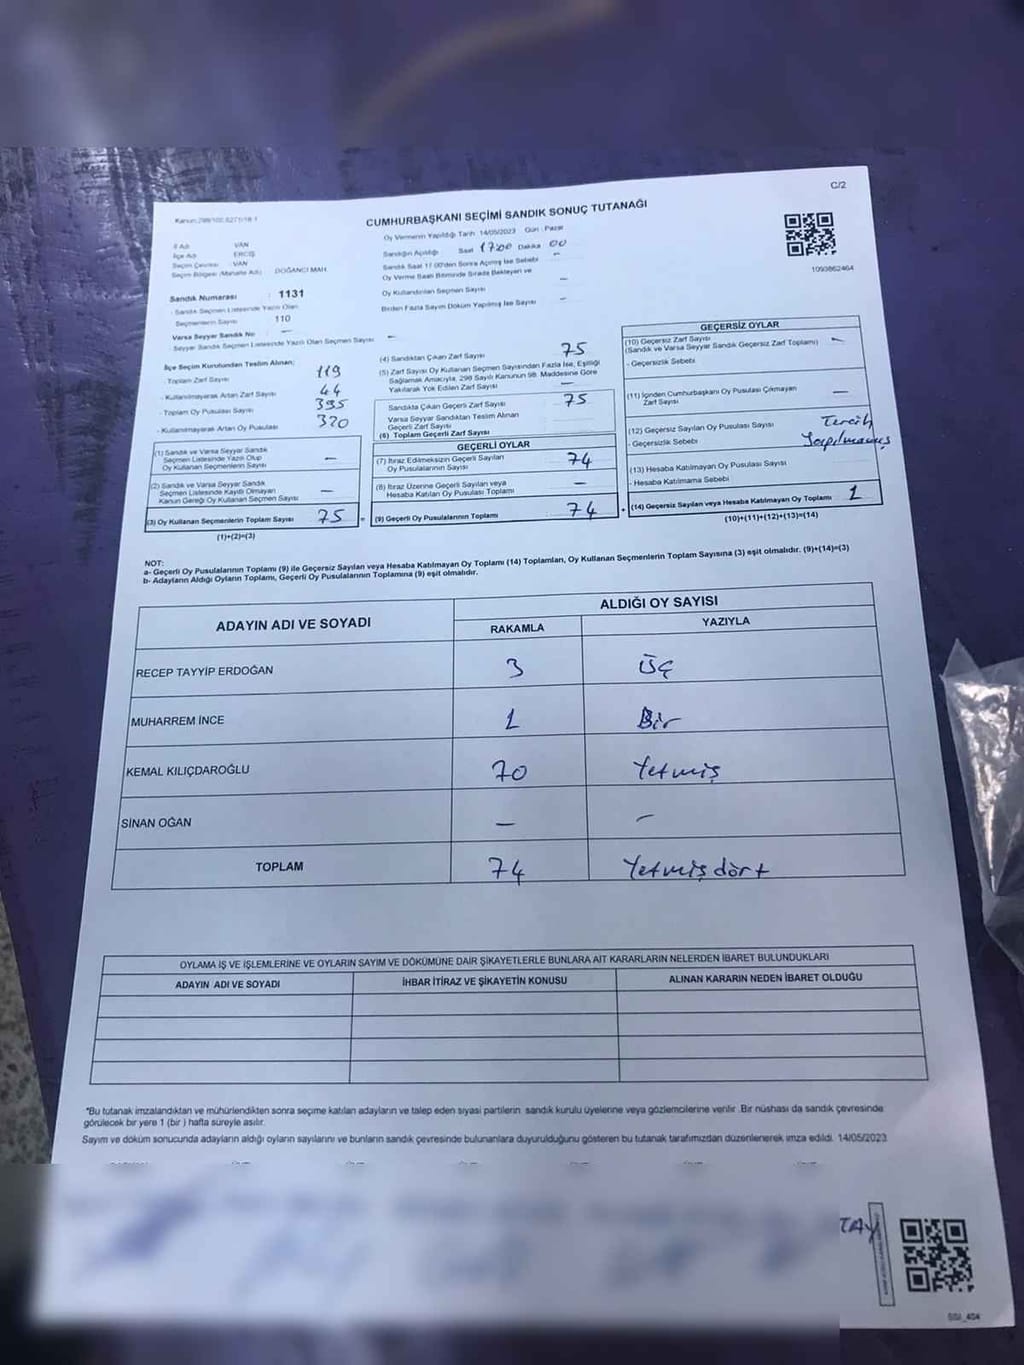 C/2
CUMHURBAŞKANI SEÇİMİ SANDIK SONUÇ TUTANAĞI
1093862464
İl Adı VAN
İlçe Adı ERCİŞ
Seçim Çevresi VAN
Seçim Bölgesi (Mahalle Adı) DOĞANCI MAH.
Sandık Numarası : 1131
- Sandık Seçmen Listesinde Yazılı Olan
Seçmenlerin Sayısı 110
Varsa Seyyar Sandık No : —
Seyyar Sandık Seçmen Listesinde Yazılı Olan Seçmen Sayısı —
Oy Vermenin Yapıldığı Tarih 14/05/2023 Gün : Pazar
Sandığın Açıldığı Saat 1700 Dakika 00
Sandık Saat 17:00'den Sonra Açılmış İse Sebebi —
Oy Verme Saati Bitiminde Sırada Bekleyen ve
Oy Kullandırılan Seçmen Sayısı —
Birden Fazla Sayım Döküm Yapılmış İse Sayısı —
İlçe Seçim Kurulundan Teslim Alınan;
- Toplam Zarf Sayısı 119
- Kullanılmayarak Artan Zarf Sayısı 44
- Toplam Oy Pusulası Sayısı 395
- Kullanılmayarak Artan Oy Pusulası 320
(1) Sandık ve Varsa Seyyar Sandık
Seçmen Listesinde Yazılı Olup
Oy Kullanan Seçmenlerin Sayısı —
(2) Sandık ve Varsa Seyyar Sandık
Seçmen Listesinde Kaydı Olmayan
Kanun Gereği Oy Kullanan Seçmen Sayısı —
(3) Oy Kullanan Seçmenlerin Toplam Sayısı 75
(1)+(2)=(3)
(4) Sandıktan Çıkan Zarf Sayısı 75
(5) Zarf Sayısı Oy Kullanan Seçmen Sayısından Fazla İse, Eşitliği
Sağlamak Amacıyla, 298 Sayılı Kanunun 98. Maddesine Göre
Yakılarak Yok Edilen Zarf Sayısı —
Sandıkta Çıkan Geçerli Zarf Sayısı 75
Varsa Seyyar Sandıktan Teslim Alınan
Geçerli Zarf Sayısı
(6) Toplam Geçerli Zarf Sayısı
GEÇERLİ OYLAR
(7) İtiraz Edilmeksizin Geçerli Sayılan
Oy Pusulalarının Sayısı 74
(8) İtiraz Üzerine Geçerli Sayılan veya
Hesaba Katılan Oy Pusulası Toplamı —
= (9) Geçerli Oy Pusulalarının Toplamı 74
GEÇERSİZ OYLAR
(10) Geçersiz Zarf Sayısı
(Sandık ve Varsa Seyyar Sandık Geçersiz Zarf Toplamı) —
- Geçersizlik Sebebi
(11) İçinden Cumhurbaşkanı Oy Pusulası Çıkmayan
Zarf Sayısı —
(12) Geçersiz Sayılan Oy Pusulası Sayısı Tercih
- Geçersizlik Sebebi Yapılmamış
(13) Hesaba Katılmayan Oy Pusulası Sayısı
- Hesaba Katılmama Sebebi
+ (14) Geçersiz Sayılan veya Hesaba Katılmayan Oy Toplamı 1
(10)+(11)+(12)+(13)=(14)
NOT:
a- Geçerli Oy Pusulalarının Toplamı (9) ile Geçersiz Sayılan veya Hesaba Katılmayan Oy Toplamı (14) Toplamları, Oy Kullanan Seçmenlerin Toplam Sayısına (3) eşit olmalıdır. (9)+(14)=(3)
b- Adayların Aldığı Oyların Toplamı, Geçerli Oy Pusulalarının Toplamına (9) eşit olmalıdır.
ADAYIN ADI VE SOYADI ALDIĞI OY SAYISI
RAKAMLA YAZIYLA
RECEP TAYYİP ERDOĞAN 3 üç
MUHARREM İNCE 1 Bir
KEMAL KILIÇDAROĞLU 70 Yetmiş
SİNAN OĞAN — —
TOPLAM 74 Yetmişdört
OYLAMA İŞ VE İŞLEMLERİNE VE OYLARIN SAYIM VE DÖKÜMÜNE DAİR ŞİKAYETLERLE BUNLARA AİT KARARLARIN NELERDEN İBARET BULUNDUKLARI
ADAYIN ADI VE SOYADI İHBAR İTİRAZ VE ŞİKAYETİN KONUSU ALINAN KARARIN NEDEN İBARET OLDUĞU
*Bu tutanak imzalandıktan ve mühürlendikten sonra seçime katılan adayların ve talep eden siyasi partilerin sandık kurulu üyelerine veya gözlemcilerine verilir. Bir nüshası da sandık çevresinde
görülecek bir yere 1 (bir) hafta süreyle asılır.
Sayım ve döküm sonucunda adayların aldığı oyların sayılarını ve bunların sandık çevresinde bulunanlara duyurulduğunu gösteren bu tutanak tarafımızdan düzenlenerek imza edildi. 14/05/2023
TAY